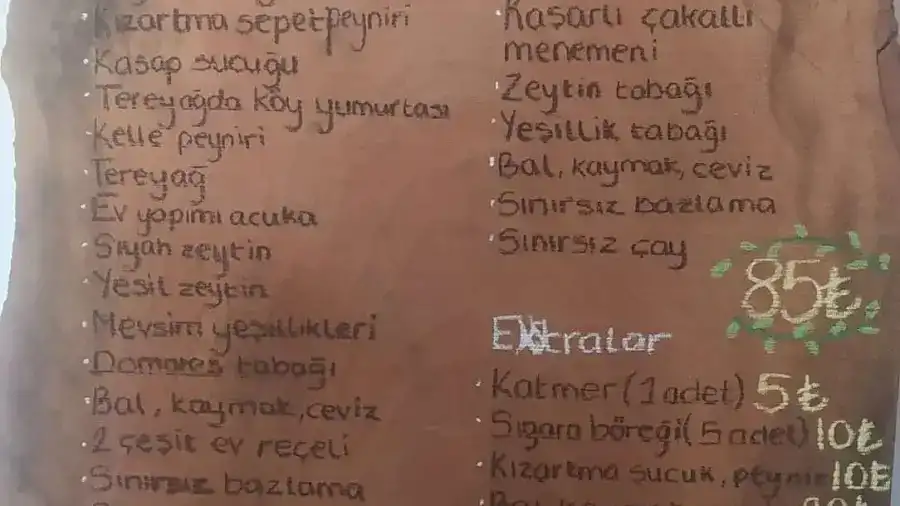 Kızartma sepetpeyniri
Kasap sucuğu
Tereyağda köy yumurtası
Kelle peyniri
Tereyağ
Ev yapımı acuka
Siyah zeytin
Yeşil zeytin
Mevsim yeşillikleri
Domates tabağı
Bal, kaymak, ceviz
2 çeşit ev reçeli
Sınırsız bazlama
Kaşarlı çakallı
menemeni
Zeytin tabağı
Yeşillik tabağı
Bal, kaymak, ceviz
Sınırsız bazlama
Sınırsız çay
85₺
Extralar
Katmer (1 adet) 5₺
Sigara böreği (5 adet) 10₺
Kızartma sucuk, peynir 10₺